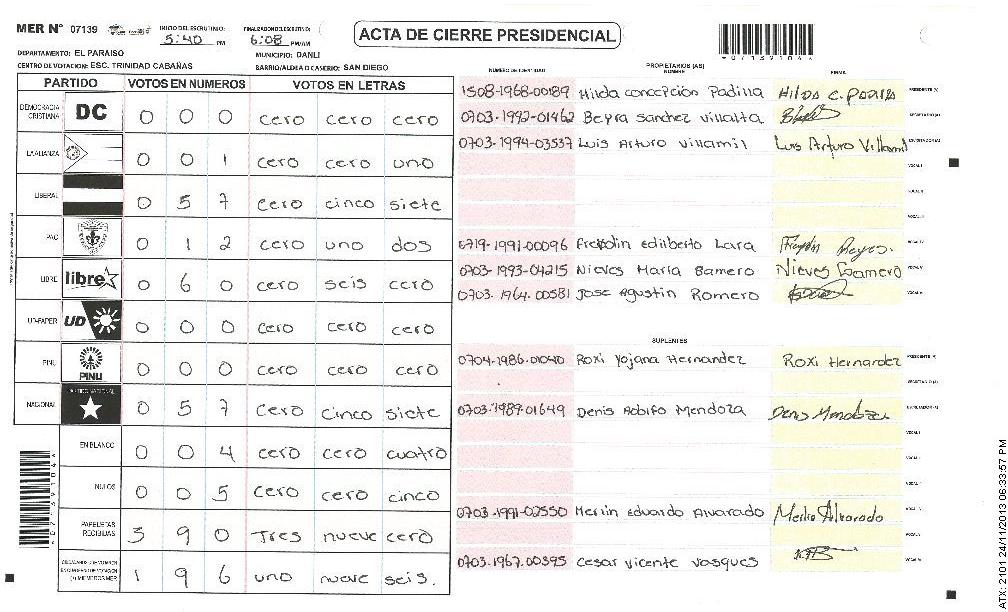 MER N° 07139
INICIO DEL ESCRUTINIO: 5:40 PM
FINALIZACION DEL ESCRUTINIO: 6:08 PM/AM
ACTA DE CIERRE PRESIDENCIAL
*07139104*
DEPARTAMENTO: EL PARAISO
MUNICIPIO: DANLI
CENTRO DE VOTACION: ESC. TRINIDAD CABAÑAS
BARRIO/ALDEA O CASERIO: SAN DIEGO
PARTIDO VOTOS EN NUMEROS VOTOS EN LETRAS
DEMOCRACIA CRISTIANA DC 0 0 0 cero cero cero
LA ALIANZA 0 0 1 cero cero uno
LIBERAL 0 5 7 cero cinco siete
PAC 0 1 2 cero uno dos
LIBRE libre 0 6 0 cero seis cero
UD-FAPER UD 0 0 0 cero cero cero
PINU PINU 0 0 0 cero cero cero
NACIONAL PARTIDO NACIONAL 0 5 7 cero cinco siete
EN BLANCO 0 0 4 cero cero cuatro
NULOS 0 0 5 cero cero cinco
PAPELETAS RECIBIDAS 3 9 0 Tres nueve cero
1 9 6 uno nueve seis.
NUMERO DE IDENTIDAD PROPIETARIOS (AS) NOMBRE FIRMA
1508-1968-00189 Hilda concepción Padilla Hilda C. Padilla PRESIDENTE (A)
0703-1992-01462 Beyra Sanchez Villalta SECRETARIO (A)
0703-1994-03537 Luis Arturo Villamil Luis Arturo Villamil ESCRUTADOR (A)
VOCAL I
VOCAL II
VOCAL III
0719-1991-00096 Edilberto Lara Reyes. VOCAL IV
0703-1993-04215 Nieves María Gamero Nieves Gamero VOCAL V
0703-1964-00581 Jose Agustin Romero VOCAL VI
SUPLENTES
0704-1986-01040 Roxi Yojana Hernandez Roxi Hernandez PRESIDENTE (A)
SECRETARIO (A)
0703-1989-01649 Denis Adolfo Mendoza Denis Mendoza ESCRUTADOR (A)
VOCAL I
VOCAL II
VOCAL III
0703-1991-02550 Merlin Eduardo Alvarado Merlin Alvarado VOCAL IV
VOCAL V
0703-1967-00395 Cesar Vicente Vasques VOCAL VI
*07139104*
ATX: 2101 24/11/2013 06:33:57 PM